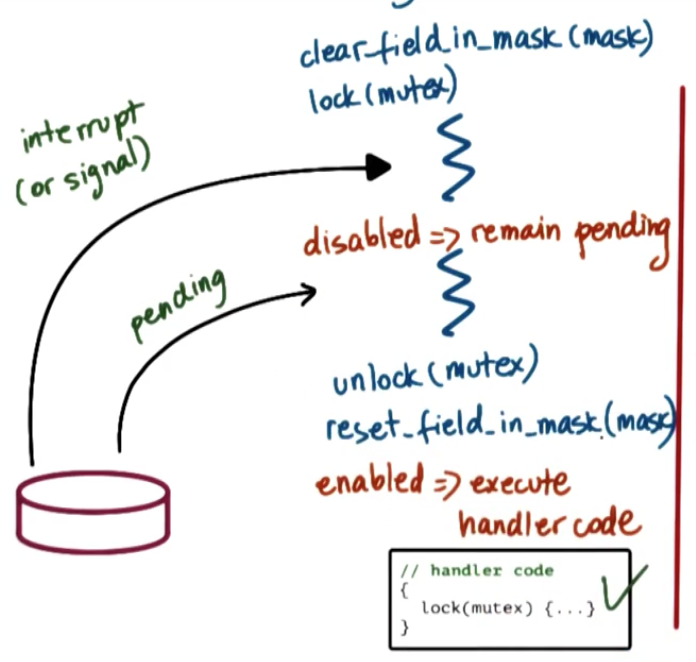 clear_field_in_mask (mask)
lock (mutex)
interrupt
(or signal)
disabled => remain pending
pending
unlock (mutex)
reset_field_in_mask.(mask)
enabled => execute
handler code
// handler code
{
lock(mutex) {...}
}